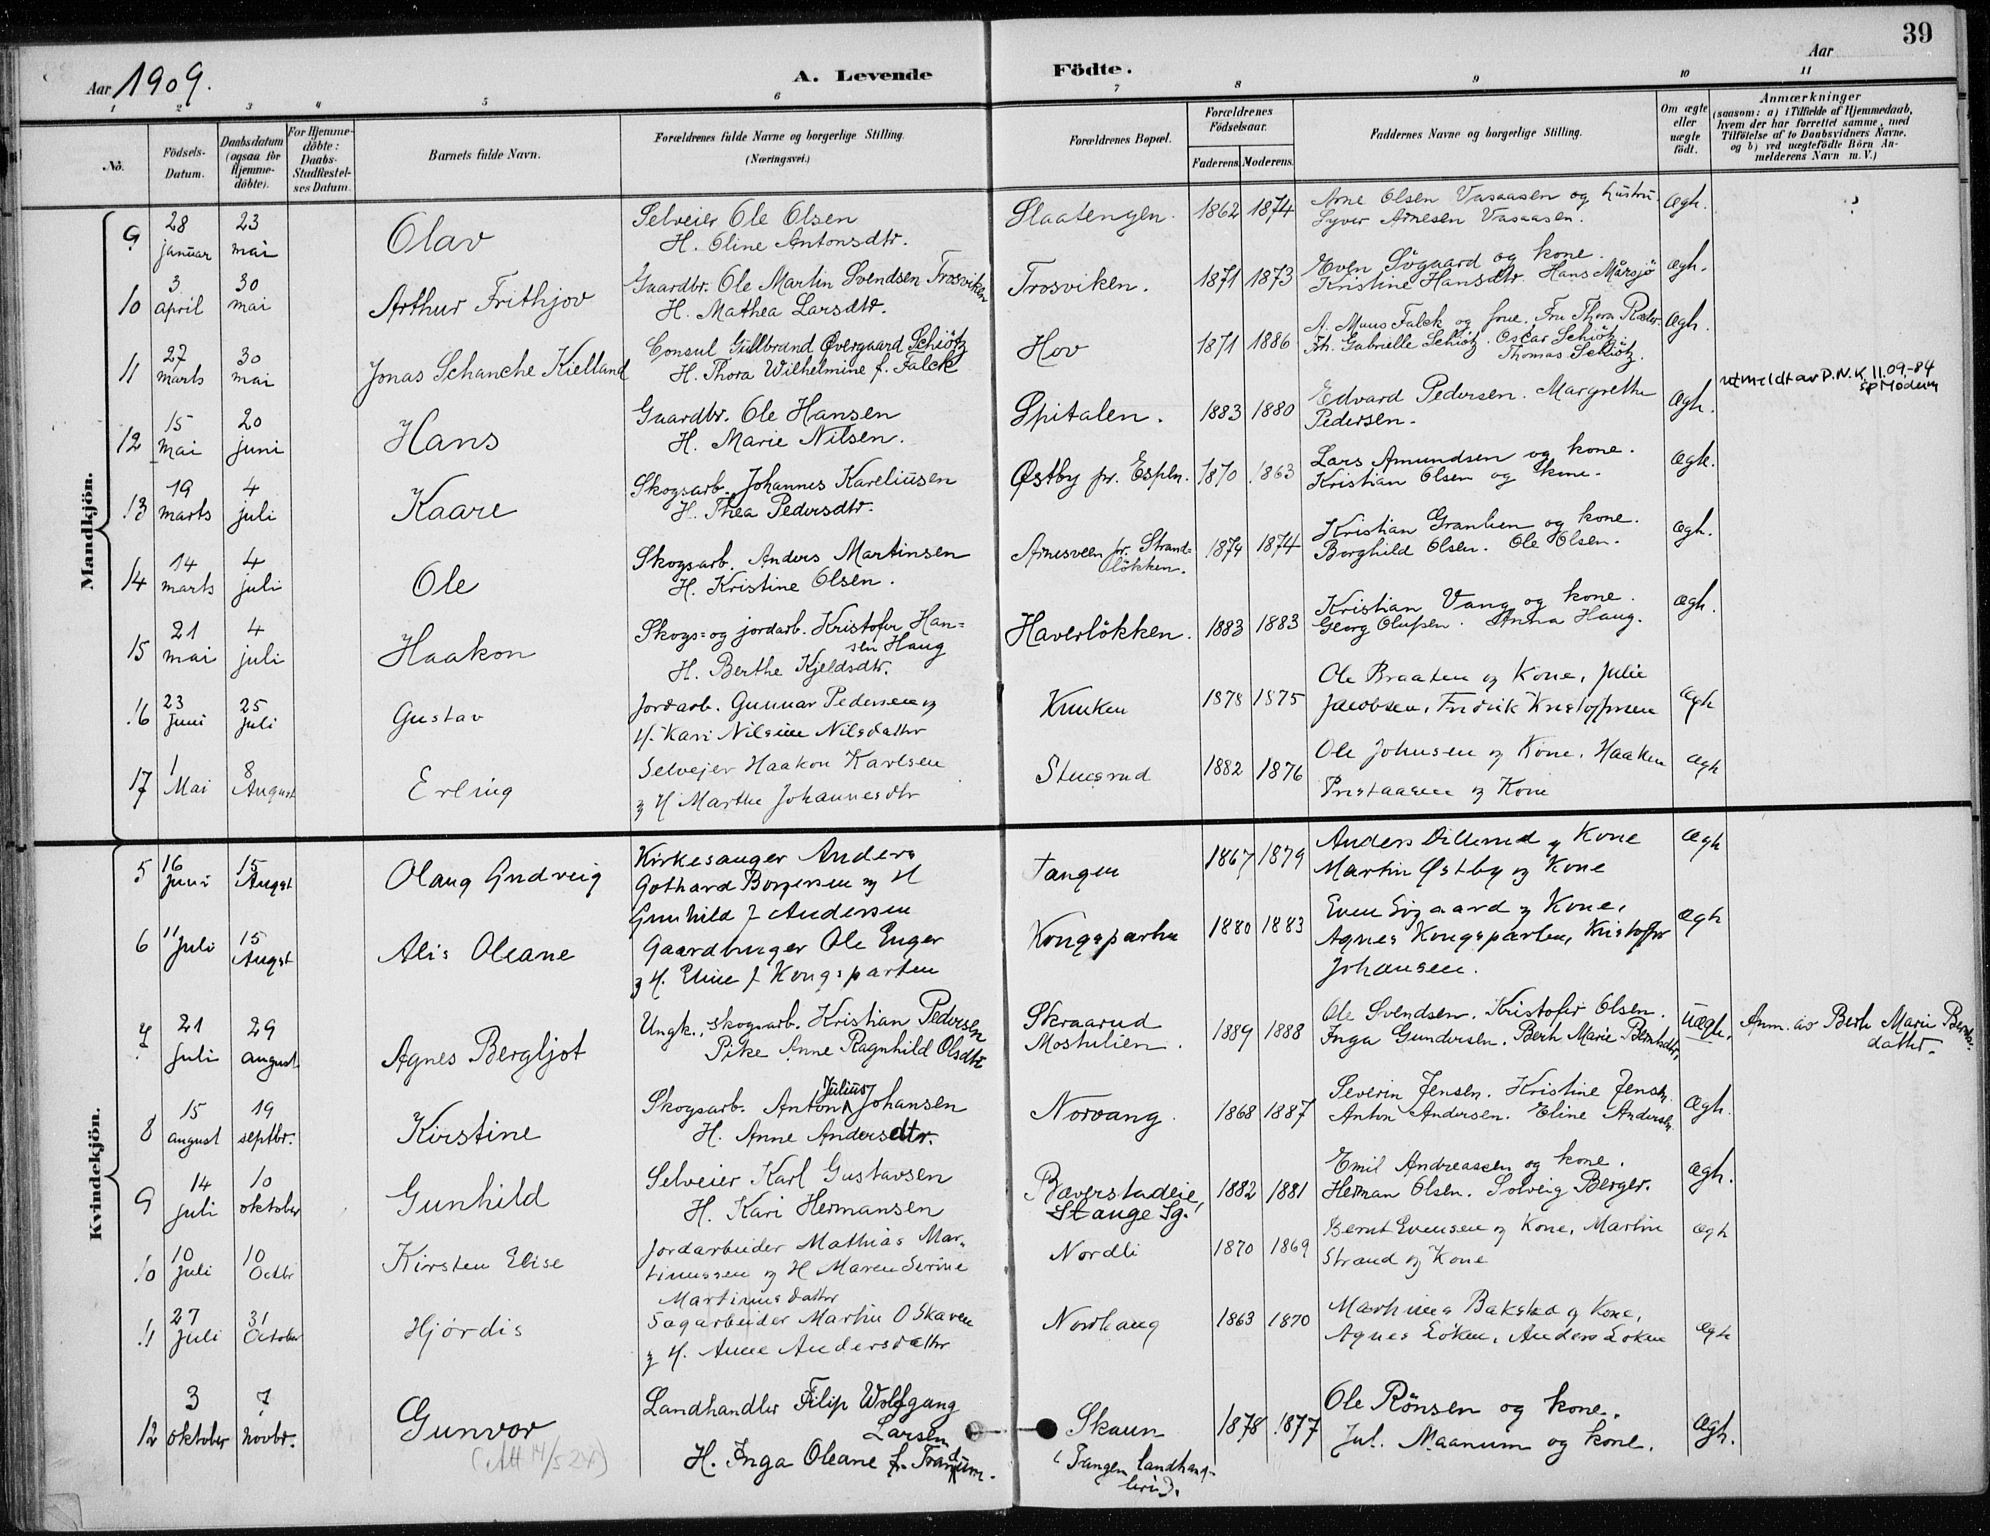 39
Aar 1909.
A. Levende
Födte.
Aar
1 2 3 4 5 6 7 8 9 10 11
No.
Födsels-Datum.
Daabsdatum (ogsaa for Hjemme-döbte).
For Hjemme-döbte: Daabs-Stadfæstel-ses Datum.
Barnets fulde Navn.
Forældrenes fulde Navne og borgerlige Stilling.
(Næringsvei.)
Forældrenes Bopæl.
Forældrenes Födselsaar.
Faderens. Moderens.
Faddernes Navne og borgerlige Stilling.
Om ægte eller uægte födt.
Anmærkninger
(saasom: a) i Tilfælde af Hjemmedaab,
hvem der har forrettet samme, med
Tilföielse af to Daabsvidners Navne,
og b) ved uægtefödte Börn An-
melderens Navn m. V.)
Mandkjön.
9 28 januar 23 mai Olav Selveier Ole Olsen
H. Oline Antonsdtr. Slaatengen. 1862 1874 Arne Olsen Vasaasen og hustru.
Syver Arnesen Vasaasen. Ægh.
10 3 april 30 mai Arthur Frithjov Gaardbr. Ole Martin Svendsen Trosviken
H. Mathea Larsdtr. Trosviken. 1871 1873 Even Sögaard og kone.
Kristine Hansdtr. Hans Mårsjö Ægh.
11 27 marts 30 mai Jonas Schanche Kielland Consul Gullbrand Øvergaard Schiötz
H. Thora Wilhelmine f. Falck Hov 1871 1886 A. Muus Falck og frue, Fru Thora Rœder.
Fh. Gabrielle Schiötz. Oscar Schiötz.
Thomas Schiötz. Ægh.
utmeldt av D.N.K 11.09.-84
12 15 mai 20 juni Hans Gaardbr. Ole Hansen
H. Marie Nilsen. Spitalen. 1883 1880 Edvard Pedersen. Margrethe
Pedersen. Ægh.
13 19 marts 4 juli Kaare Skogsarb. Johannes Kareliusen
H. Thea Pedersdtr. Østby pr. Espln. 1870 1863 Lars Amundsen og kone.
Kristian Olsen og kone. Ægte.
14 14 marts 4 juli Ole Skogsarb. Anders Martinsen
H. Kristine Olsen. Arnesveen pr. Strand-
lökken. 1874 1874 Kristian Granlien og kone.
Borghild Olsen. Ole Olsen. Ægh.
15 21 mai 4 juli Haakon Skogs= og jordarb. Kristofer Han=
sen Haug
H. Berthe Kjeldsdtr. Haverlökken. 1883 1883 Kristian Vang og kone.
Georg Olufsen. Anna Haug. Ægh.
16 23 Juni 25 Juli Gustav Jordarb. Gunnar Pedersen og
H. Kari Nilsine Nilsdatter Knuken 1878 1875 Ole Braaten og Kone, Julie
Jacobsen, Fredrik Kristoffersen Ægh
17 1 Mai 8 August Erling Selvejer Haakon Karlsen
og H Marthe Johannesdtr Stensrud 1882 1876 Ole Johnsen og Kone, Haaken
Prestaasen og Kone Ægh
Kvindekjön.
5 16 Juni 15 Augst Olaug Gudveig Kirkesanger Anders
Gothard Borgersen og H
Gunhild f Andersen Tangen 1867 1879 Anders Dillerud og Kone
Martin Østby og Kone Ægh
6 11 Juli 15 Augst Alis Oleane Gaardbruger Ole Enger
og H. Eline f Kongsparten Kongsparten 1880 1883 Even Sögaard og Kone,
Agnes Kongsparten, Kristoffer
Johansen. Ægh
7 21 juli 29 august Agnes Bergljot Ungk., skogsarb. Kristian Pedersen
Pike Anne Ragnhild Olsdtr Skraarud
Mostulien. 1889 1888 Ole Svendsen. Kristofer Olsen.
Inga Gundersen. Berth Marie Berntsdtr, Uægte. Anm. av Berth Marie
datter.
8 15 august 19 septbr. Kirstine Skogsarb. Anton Julius Johansen
H. Anne Andersdtr. Norvang. 1868 1887 Severin Jensen. Kristine Jensen.
Anton Andersen. Eline Andersen. Ægh.
9 14 juli 10 oktober Gunhild Selveier Karl Gustavsen
H. Kari Hermansen Bæverstadeie,
Stange Sg. 1882 1881 Emil Andreassen og kone.
Herman Olsen. Solveig Berger. Ægh.
10 10 Juli 10 Octbr Kirsten Elise Jordarbeider Mathias Mar-
tinussen og H Maren Serine
Martinusdatter Nordli 1870 1869 Bernt Evensen og Kone, Martin
Strand og Kone Ægh
11 27 Juli 31 October Hjördis Sagarbeider Martin O Skaven
og H. Anne Andersdatter Nordhaug 1863 1870 Marthinus Bakstad og Kone,
Agnes Löken, Anders Löken Ægh
12 3 oktober 7 novbr. Gunvor Landhandler Filip Wolfgang
Larsen
H. Inga Oleane f. Trandum. Skaun
(Tangen landhand-
leri). 1878 1877 Ole Rönsen og kone.
Jul. Maanum og kone. Ægh.
(Att 14/5 24)